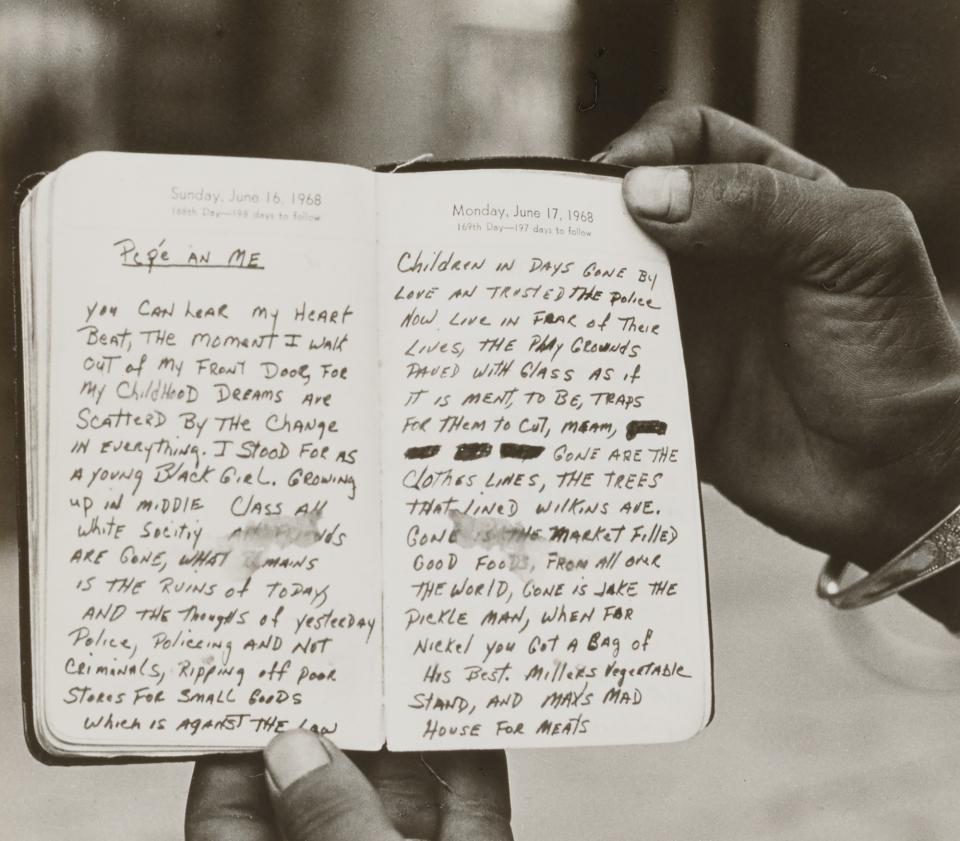 Sunday, June 16, 1968
168th Day—198 days to follow
Pepé AN ME
you CAN hEAR my HEART
BEAT, THE moment I walk
OUT of My FRONT DOOR, FOR
My ChildHOOD DREAMS ARE
SCATTERD By THE CHANGE
IN EVERYthing. I STOOD FOR AS
A young BlACK GiRL. GROWING
up in MiDDLE Class All
White Socitiy
ARE GONE, WHAT
iS THE RUiNS of TODAy,
AND THE Thoughts of yesterday
Police, Policeing AND NOT
CRiminals, Ripping off poor
STORES FOR SMALL GOODS
Which is AGAiNST THE LAW
Monday, June 17, 1968
169th Day—197 days to follow
Children IN DAYS GONE By
LOVE AN TRUSTED THE Police
NOW LIVE IN FEAR of Their
LIVES, THE PlAy GROUNDS
PAVED WITH GLASS AS if
IT is MENT, TO BE, TRAPS
FOR THEM to CUT, MEAM,
GONE ARE THE
CLOTHES LINES, THE TREES
THAT LINED WILKINS AVE.
GONE is THE MARKET FillED
GOOD FOODS, FROM All OVER
THE WORLD, GONE is JAKE THE
PICKLE MAN, WHEN FOR
Nickel you GOT A BAG of
His BEST. Millers Vegertable
STAND, AND MAX'S MAD
HOUSE FOR MEATS